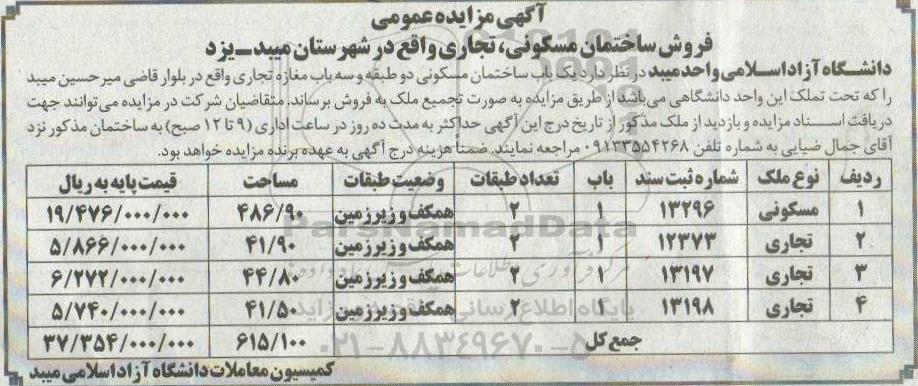 آگهی مزایده عمومی
فروش ساختمان مسکونی، تجاری واقع در شهرستان میبد ـ یزد
دانشگاه آزاد اسلامی واحد میبد در نظر دارد یک باب ساختمان مسکونی دو طبقه و سه باب مغازه تجاری واقع در بلوار قاضی میرحسین میبد
را که تحت تملک این واحد دانشگاهی می‌باشد از طریق مزایده به صورت تجمیع ملک به فروش برساند. متقاضیان شرکت در مزایده می‌توانند جهت
دریافت اسناد مزایده و بازدید از ملک مذکور از تاریخ درج این آگهی حداکثر به مدت ده روز در ساعت اداری (۹ تا ۱۲ صبح) به ساختمان مذکور نزد
آقای جمال ضیایی به شماره تلفن ۰۹۱۳۳۵۵۴۲۶۸ مراجعه نمایند. ضمناً هزینه درج آگهی به عهده برنده مزایده خواهد بود.
ردیف نوع ملک شماره ثبت سند باب تعداد طبقات وضعیت طبقات مساحت قیمت پایه به ریال
۱ مسکونی ۱۳۲۹۶ ۱ ۲ همکف و زیرزمین ۴۸۶/۹۰ ۱۹/۴۷۶/۰۰۰/۰۰۰
۲ تجاری ۱۲۳۷۳ ۱ ۲ همکف و زیرزمین ۴۱/۹۰ ۵/۸۶۶/۰۰۰/۰۰۰
۳ تجاری ۱۳۱۹۷ ۱ ۲ همکف و زیرزمین ۴۴/۸۰ ۶/۲۷۲/۰۰۰/۰۰۰
۴ تجاری ۱۳۱۹۸ ۱ ۲ همکف و زیرزمین ۴۱/۵۰ ۵/۷۴۰/۰۰۰/۰۰۰
جمع کل ۶۱۵/۱۰۰ ۳۷/۳۵۴/۰۰۰/۰۰۰
کمیسیون معاملات دانشگاه آزاد اسلامی میبد
ParsNamadData
۰۲۱-۸۸۳۴۹۶۷۰-۵